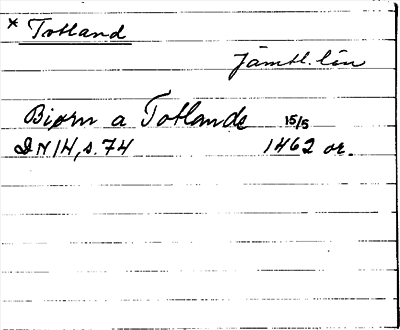 * Totland
Jämtl. län
Biørn a Totlande 15/5
DN 14, s. 74 1462 or.